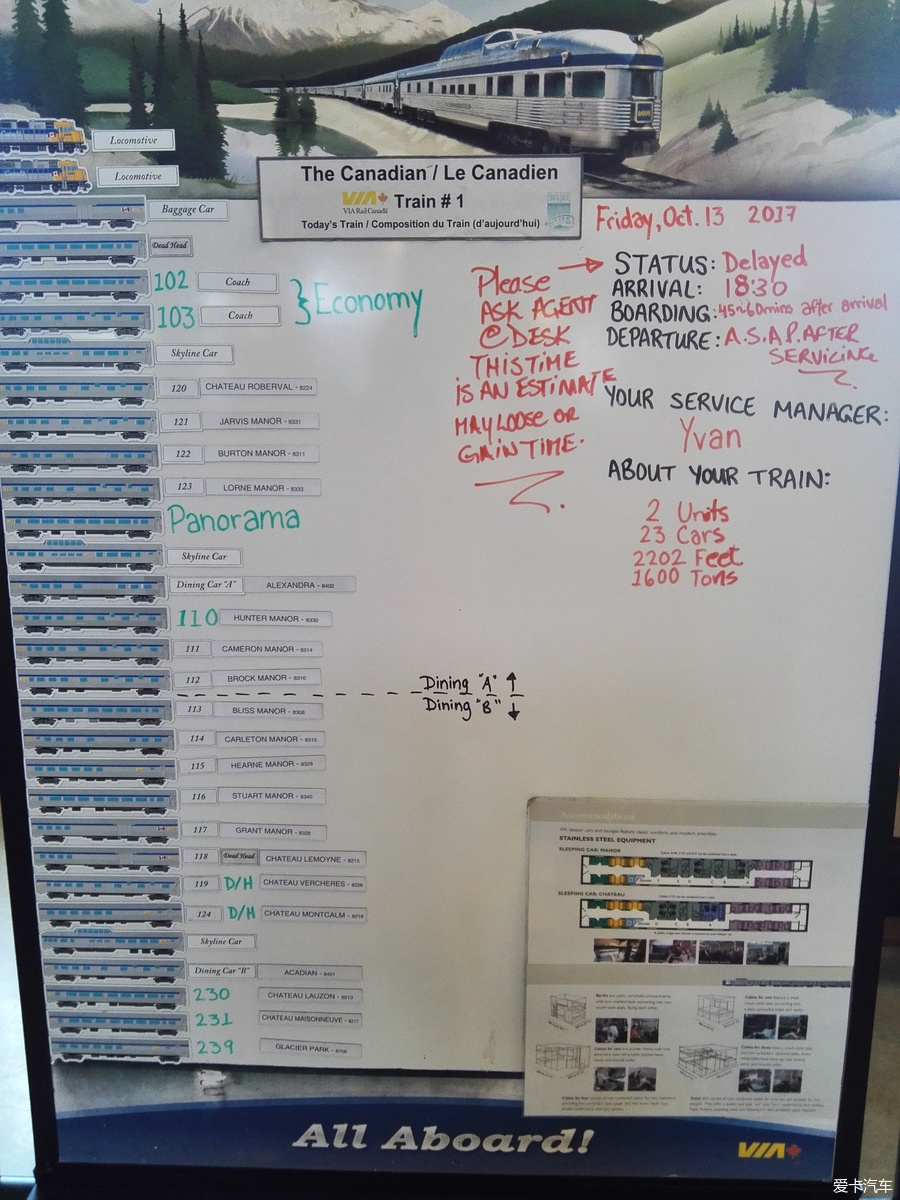 Locomotive
Locomotive
The Canadian / Le Canadien
VIA Train # 1
VIA Rail Canada
Today's Train / Composition du Train (d'aujourd'hui)
Baggage Car
Dead Head
102 Coach
103 Coach
} Economy
Skyline Car
120 CHATEAU ROBERVAL - 8224
121 JARVIS MANOR - 8331
122 BURTON MANOR - 8311
123 LORNE MANOR - 8333
Panorama
Skyline Car
Dining Car "A" ALEXANDRA - 8402
110 HUNTER MANOR - 8330
111 CAMERON MANOR - 8314
112 BROCK MANOR - 8310
113 BLISS MANOR - 8308
114 CARLETON MANOR - 8315
115 HEARNE MANOR - 8329
116 STUART MANOR - 8340
117 GRANT MANOR - 8328
118 Dead Head CHATEAU LEMOYNE - 8215
119 D/H CHATEAU VERCHERES - 8226
124 D/H CHATEAU MONTCALM - 8219
Skyline Car
Dining Car "B" ACADIAN - 8401
230 CHATEAU LAUZON - 8213
231 CHATEAU MAISONNEUVE - 8217
239 GLACIER PARK - 8708
Dining "A" ↑
Dining "B" ↓
Please →
ASK AGENT
@ DESK
THIS TIME
IS AN ESTIMATE
MAY LOOSE OR
GAIN TIME.
Friday, Oct. 13 2017
STATUS: Delayed
ARRIVAL: 18:30
BOARDING: 45~60mins after arrival
DEPARTURE: A.S.A.P. AFTER
SERVICING
YOUR SERVICE MANAGER:
Yvan
ABOUT YOUR TRAIN:
2 Units
23 Cars
2202 Feet
1600 Tons
Accommodations
VIA sleeper cars and lounges feature classic comforts and modern amenities.
STAINLESS STEEL EQUIPMENT
SLEEPING CAR: MANOR
SLEEPING CAR: CHATEAU
All Aboard!
VIA
爱卡汽车